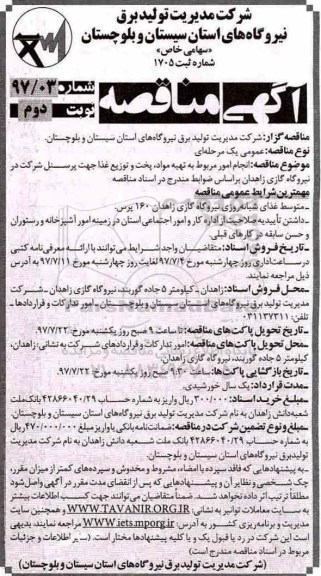 شرکت مدیریت تولید برق
نیروگاه‌های استان سیستان و بلوچستان
«سهامی خاص»
شماره ثبت ۱۷۰۵
آگهی مناقصه
شماره ۹۷/۰۳
نوبت دوم
مناقصه گزار: شرکت مدیریت تولید برق نیروگاه‌های استان سیستان و بلوچستان.
نوع مناقصه: عمومی یک مرحله‌ای
موضوع مناقصه: انجام امور مربوط به تهیه مواد، پخت و توزیع غذا جهت پرسنل شرکت در
نیروگاه گازی زاهدان براساس ضوابط مندرج در اسناد مناقصه
مهمترین شرایط عمومی مناقصه
ـ متوسط غذای شبانه‌روزی نیروگاه گازی زاهدان ۱۶۰ پرس.
ـ داشتن تأییدیه صلاحیت از اداره کار و امور اجتماعی استان در زمینه امور آشپزخانه و رستوران
و حسن سابقه در کارهای قبلی.
ـ تاریخ فروش اسناد: متقاضیان واجد شرایط می‌توانند با ارائه معرفی‌نامه کتبی
در ساعات اداری روز چهارشنبه مورخ ۹۷/۷/۴ لغایت روز چهارشنبه مورخ ۹۷/۷/۱۱ به آدرس
ذیل مراجعه نمایند.
ـ محل فروش اسناد: زاهدان ـ کیلومتر ۵ جاده گوربند، نیروگاه گازی زاهدان ـ شرکت
مدیریت تولید برق نیروگاه‌های استان سیستان و بلوچستان ـ امور تدارکات و قراردادها ـ
تلفن: ۰۳۱۱۳۷۳۱
ـ تاریخ تحویل پاکت‌های مناقصه: تا ساعت ۹ صبح روز یکشنبه مورخ ۹۷/۷/۲۲.
ـ محل تحویل پاکت‌های مناقصه: امور تدارکات و قراردادهای شرکت به نشانی: زاهدان،
کیلومتر ۵ جاده گوربند، نیروگاه گازی زاهدان.
ـ تاریخ بازگشایی پاکت‌ها: ساعت ۹:۳۰ صبح روز یکشنبه مورخ ۹۷/۷/۲۲.
ـ مدت قرارداد: یک سال خورشیدی.
ـ مبلغ خرید اسناد: ۳۰۰/۰۰۰ ریال واریز به شماره حساب ۴۲۸۶۶۰۴۰/۲۹ بانک ملت
شعبه دانش زاهدان به نام شرکت مدیریت تولید برق نیروگاه‌های استان سیستان و بلوچستان.
ـ مبلغ و نوع تضمین شرکت در مناقصه: ضمانت‌نامه بانکی یا واریز مبلغ ۴۷۰/۰۰۰/۰۰۰ ریال
به شماره حساب ۴۲۸۶۶۰۴۰/۲۹ بانک ملت شعبه دانش زاهدان به نام شرکت مدیریت
تولید برق نیروگاه‌های استان سیستان و بلوچستان.
ـ به پیشنهادهایی که فاقد سپرده یا امضاء، مشروط و مخدوش و سپرده‌های کمتر از میزان مقرر،
چک شخصی و نظایر آن و پیشنهادهایی که پس از انقضای مدت مقرر در آگهی واصل شود
مطلقاً ترتیب اثر داده نخواهد شد. ضمناً متقاضیان می‌توانند جهت کسب اطلاعات بیشتر
به سایت معاملات توانیر به نشانی: WWW.TAVANIR.ORG.IR و همچنین سایت
مدیریت و برنامه‌ریزی کشور به آدرس WWW.iets.mporg.ir مراجعه نمایند. بدیهی
است این شرکت در رد یا قبول یک و یا کلیه پیشنهادها مختار است. (سایر اطلاعات و جزئیات
مربوط در اسناد مناقصه مندرج است)
(شرکت مدیریت تولید برق نیروگاه‌های استان سیستان و بلوچستان)